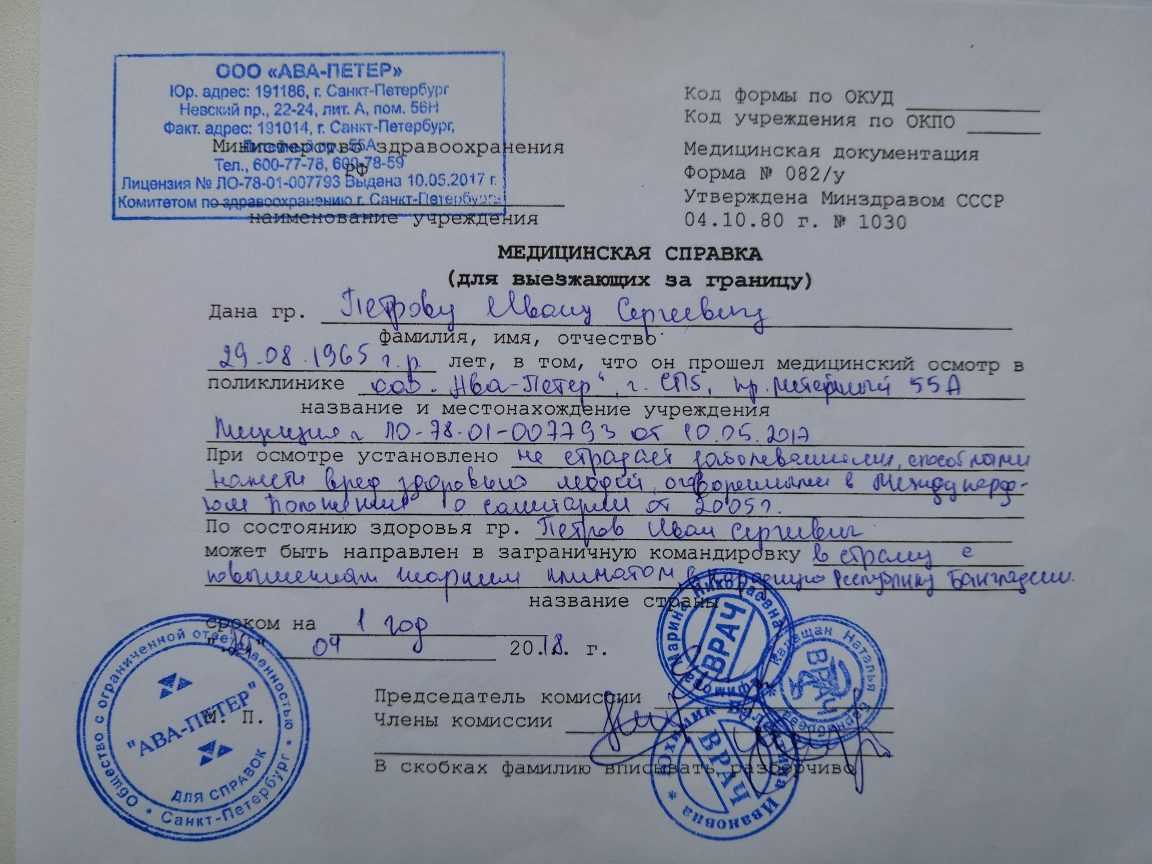 ООО «АВА-ПЕТЕР»
Юр. адрес: 191186, г. Санкт-Петербург
Невский пр., 22-24, лит. А, пом. 56Н
Факт. адрес: 191014, г. Санкт-Петербург,
55А
Тел., 600-77-78, 600-78-59
Лицензия № ЛО-78-01-007793 Выдана 10.05.2017 г.
Комитетом по здравоохранению г. Санкт-Петербурга
Министерство здравоохранения
РФ
наименование учреждения
Код формы по ОКУД
Код учреждения по ОКПО
Медицинская документация
Форма № 082/у
Утверждена Минздравом СССР
04.10.80 г. № 1030
МЕДИЦИНСКАЯ СПРАВКА
(для выезжающих за границу)
Дана гр. Петрову Ивану Сергеевичу
фамилия, имя, отчество
29.08.1965 г.р. лет, в том, что он прошел медицинский осмотр в
поликлинике ООО "Ава-Петер", г. СПб, пр. Литейный 55А
название и местонахождение учреждения
Лицензия ЛО-78-01-007793 от 10.05.2017
При осмотре установлено не страдает заболеваниями, способными
нанести вред здоровью людей, оговоренными в Международ-
ном Положении о санитарии от 2005г.
По состоянию здоровья гр. Петров Иван Сергеевич
может быть направлен в заграничную командировку в страну с
жарким климатом, в Народную Республику Бангладеш.
название страны
сроком на 1 год
04 2018. г.
М. П.
Председатель комиссии
Члены комиссии
В скобках фамилию вписывать разборчиво
Общество с ограниченной ответственностью
"АВА-ПЕТЕР"
ДЛЯ СПРАВОК
Санкт-Петербург
Марина Николаевна
ВРАЧ
Наталья
ВРАЧ
Ивановна
ВРАЧ